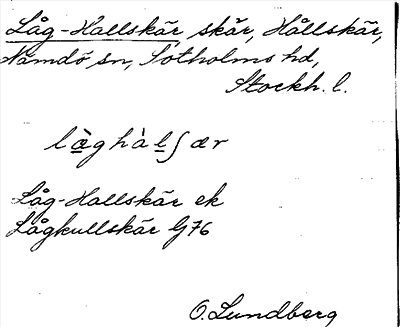 Låg-Hallskär skär, Hållskär,
Nämdö sn, Sotholms hd,
Stockh. l.
låghàlʃær
Låg-Hallskär ek
Lågkullskär G76
O. Lundberg